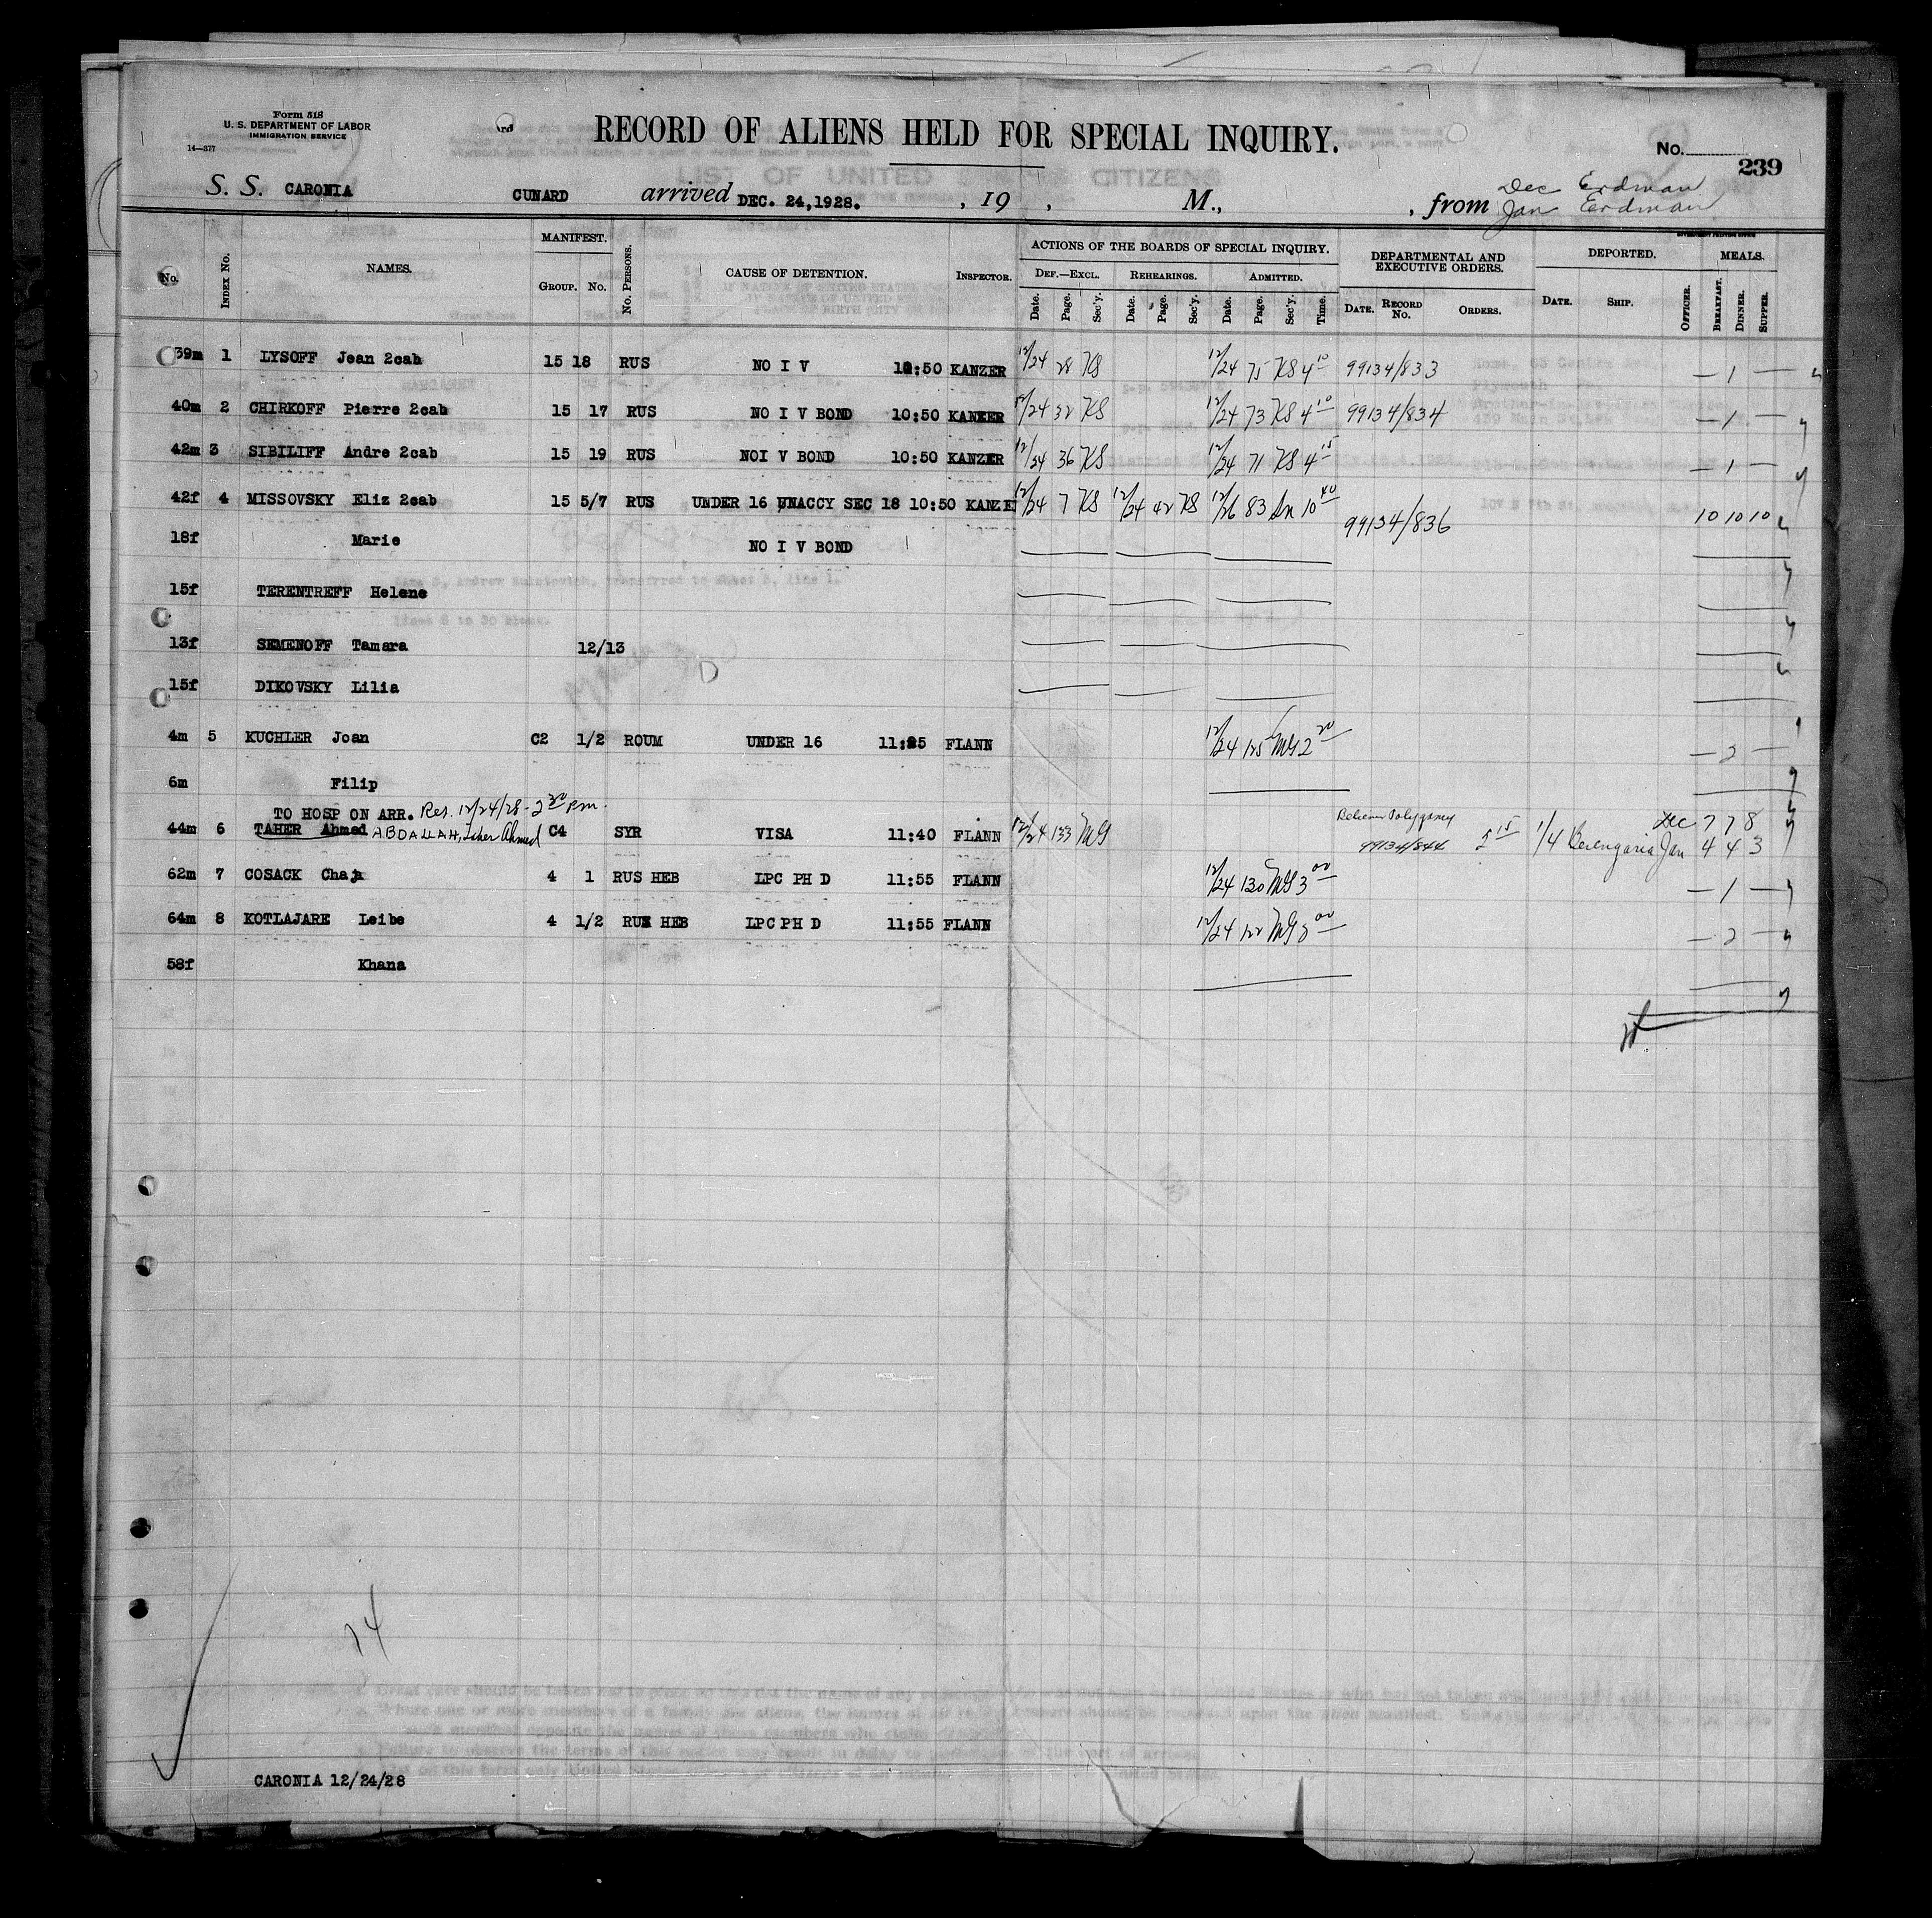 Form 518
U. S. DEPARTMENT OF LABOR
IMMIGRATION SERVICE
14—377
RECORD OF ALIENS HELD FOR SPECIAL INQUIRY.
No. 239
S. S. CARONIA CUNARD arrived DEC. 24,1928. , 19 , M., , from Dec Erdman
Jan Erdman
No. INDEX No. NAMES. MANIFEST. GROUP. No. No. PERSONS. CAUSE OF DETENTION. INSPECTOR. ACTIONS OF THE BOARDS OF SPECIAL INQUIRY. DEPARTMENTAL AND EXECUTIVE ORDERS. DEPORTED. MEALS.
DEF.—EXCL. REHEARINGS. ADMITTED.
Date. Page. Sec'y. Date. Page. Sec'y. Date. Page. Sec'y. Time. DATE. RECORD No. ORDERS. DATE. SHIP. OFFICER. BREAKFAST. DINNER. SUPPER.
39m 1 LYSOFF Jean 2cab 15 18 RUS NO I V 10:50 KANZER 12/24 28 KS 12/24 75 KS 4 10 99134/833 — 1 —
40m 2 CHIRKOFF Pierre 2cab 15 17 RUS NO I V BOND 10:50 KANZER 12/24 32 KS 12/24 73 KS 4 10 99134/834 — 1 —
42m 3 SIBILIFF Andre 2cab 15 19 RUS NOI V BOND 10:50 KANZER 12/24 36 KS 12/24 71 KS 4 15 — 1 —
42f 4 MISSOVSKY Eliz 2cab 15 5/7 RUS UNDER 16 UNACCY SEC 18 10:50 KANZE 12/24 7 KS 12/24 42 KS 12/26 83 10 40 99134/836 10 10 10
18f Marie NO I V BOND
15f TERENTREFF Helene
13f SEMENOFF Tamara 12/13
15f DIKOVSKY Lilia
4m 5 KUCHLER Joan C2 1/2 ROUM UNDER 16 11:25 FLANN 12/24 125 MG 2 20 — 2 —
6m Filip
TO HOSP ON ARR. Res. 12/24/28 - 2 30 pm.
44m 6 TAHER Ahmed ABDALLAH, Taher Ahmed C4 SYR VISA 11:40 FLANN 12/24 133 MG Believes Polygamy 99134/844 5 15 1/4 Berengaria Dec 7 7 8
Jan 4 4 3
62m 7 COSACK Chaja 4 1 RUS HEB LPC PH D 11:55 FLANN 12/24 130 MG 3 00 — 1 —
64m 8 KOTLAJARE Leibe 4 1/2 RUS HEB LPC PH D 11:55 FLANN 12/24 122 MG 3 00 — 2 —
58f Khana
CARONIA 12/24/28